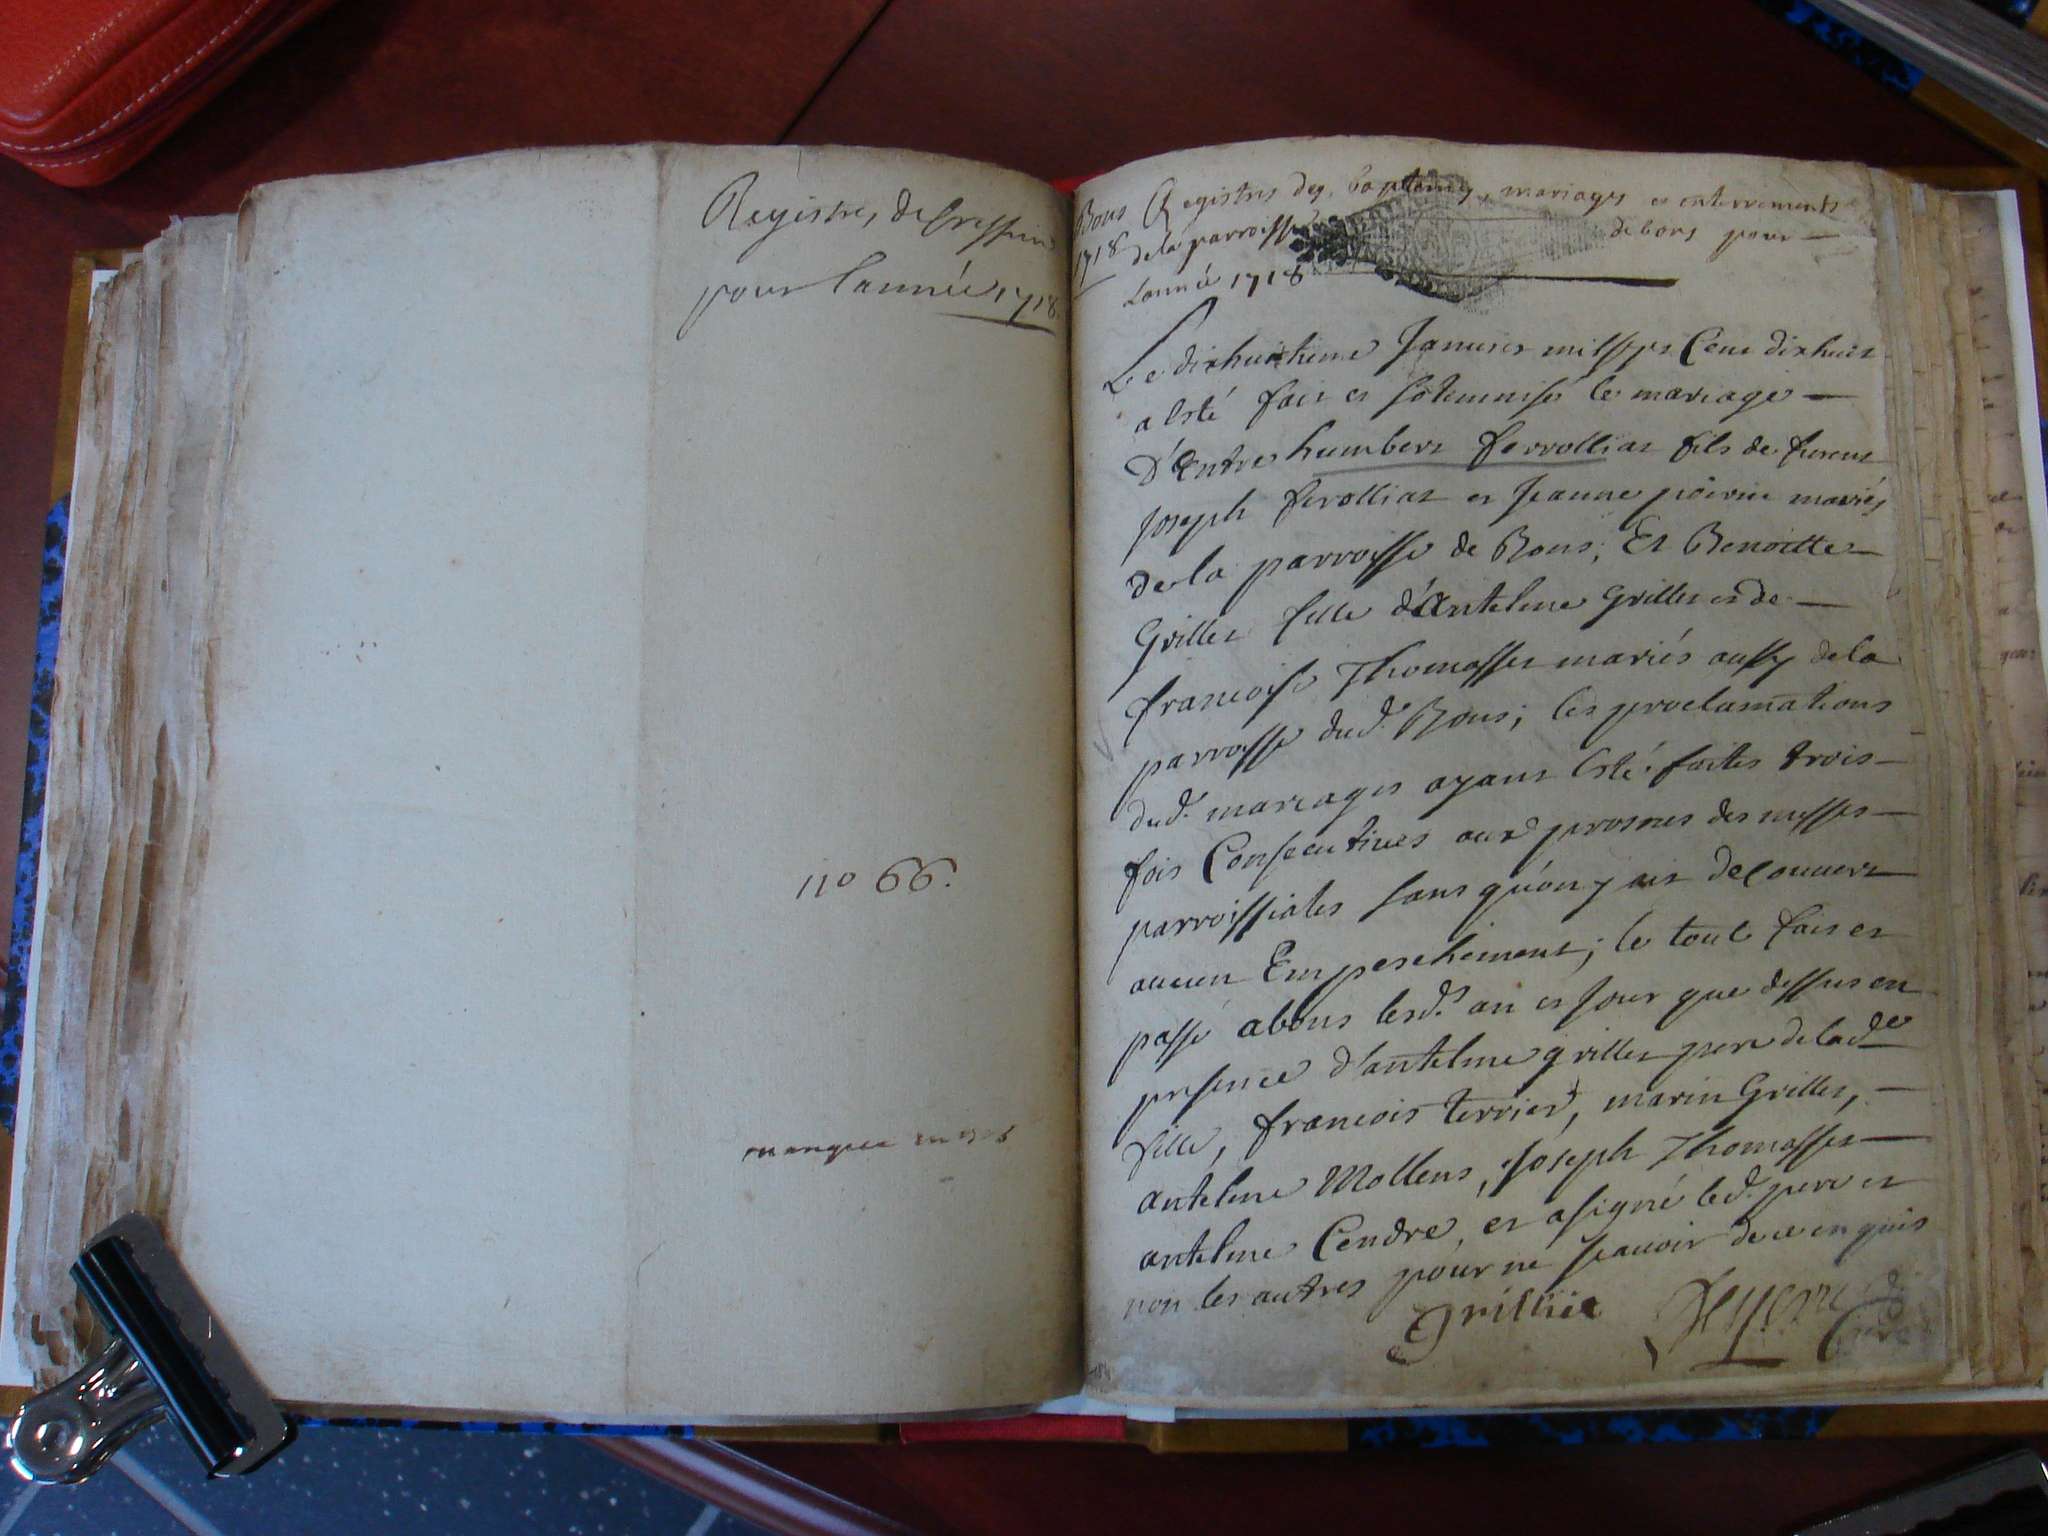 Registres de Cressieu
pour l'année 1718.
no 66.
manque en 
Bons
1718
Registres des baptemes, mariages et enterrements
de la parroisse de bons pour
L'année 1718
Le dixhuictieme Januier mil sept Cent dixhuict
a Esté fait et solemnisé le mariage
D'Entre humbert ferrolliat fils de furent
Joseph ferolliat et Jeanne mariés
de la parroisse de Bons; Et Benoitte
Grillet fille d'Antelme Grillet et de
francoise Thomasset mariés aussy de la
parroisse dud. Bons; les proclamations
dud. mariages ayant Esté faites trois
fois Consecutiues aux prosnes des messes
parroissiales sans qu'on y ait decouuert
aucun Empeschement; le tout fait et
passé a bons lesd. an et Jour que dessus en
presence d'antelme grillet pere de lad.e
fille, francois terrier, marin Grillet,
antelme Mollens, Joseph Thomasset
antelme Cendre, et a signé led. pere et
non les autres pour ne scauoir de ce enquis
Grilliet Curé